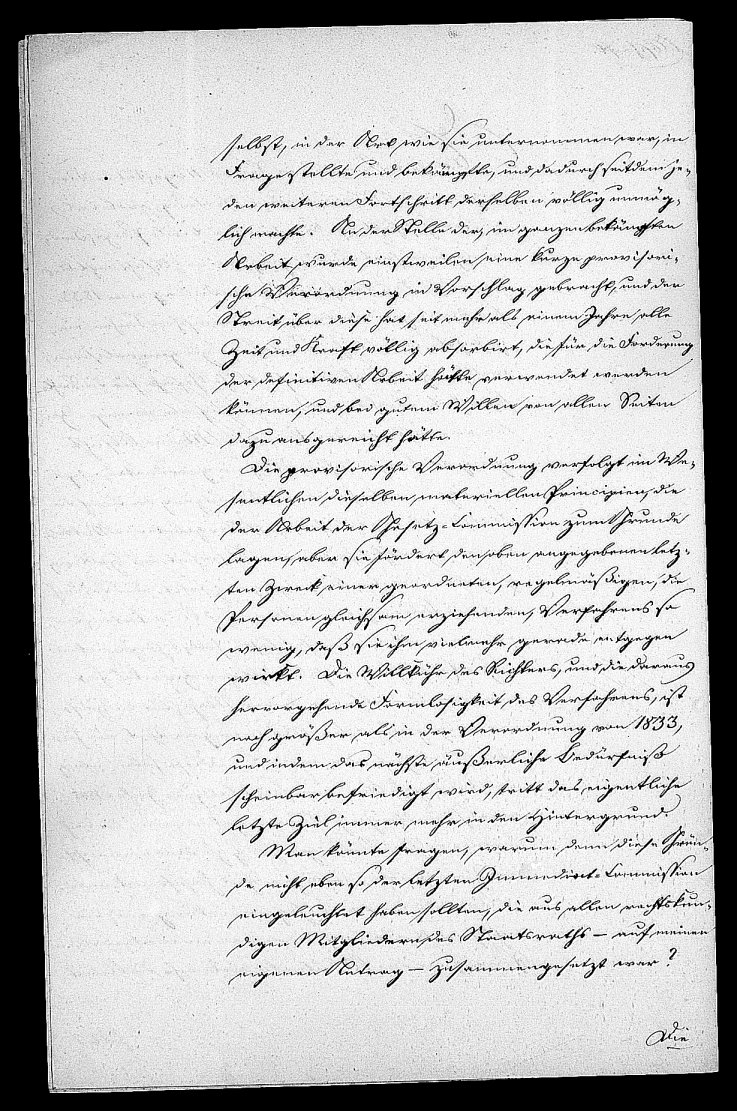 selbst, in der Art wie sie unternommen war, in
Frage stellte und bekämpfte, und dadurch seitdem je-
den weiteren Fortschritt derselben völlig unmög-
lich machte. An der Stelle der, im ganzen bekämpften
Arbeit, wurde einstweilen eine kurze provisori-
sche Verordnung in Vorschlag gebracht, und der
Streit über diese hat seit mehr als einem Jahre alle
Zeit und Kraft völlig absorbirt, die für die Förderung
der definitiven Arbeit hätte verwendet werden
können, und bei gutem Willen von allen Seiten
dazu ausgereicht hätte.
Die provisorische Verordnung verfolgt im We-
sentlichen dieselben materiellen Principien, die
der Arbeit der Gesetz-Commission zum Grunde
lagen, aber sie fördert den oben angegebenen letz-
ten Zweck einer geordneten, regelmäßigen, die
Personen gleichsam erziehenden, Verfahrens so
wenig, daß sie ihm vielmehr gerade entgegen
wirkt. Die Willkühr des Richters, und die daraus
hervorgehende Formlosigkeit des Verfahrens, ist
noch größer als in der Verordnung von 1833,
und indem das nächste äußerliche Bedürfniß
scheinbar befriedigt wird, tritt das eigentliche
letzte Ziel immer mehr in den Hintergrund.
Man könnte fragen, warum denn diese Grün-
de nicht eben so der letzten Immediat-Commission
eingeleuchtet haben sollten, die aus allen rechtskun-
digen Mitgliedern des Staatsraths — auf meinen
eigenen Antrag — zusammengesetzt war?
Die